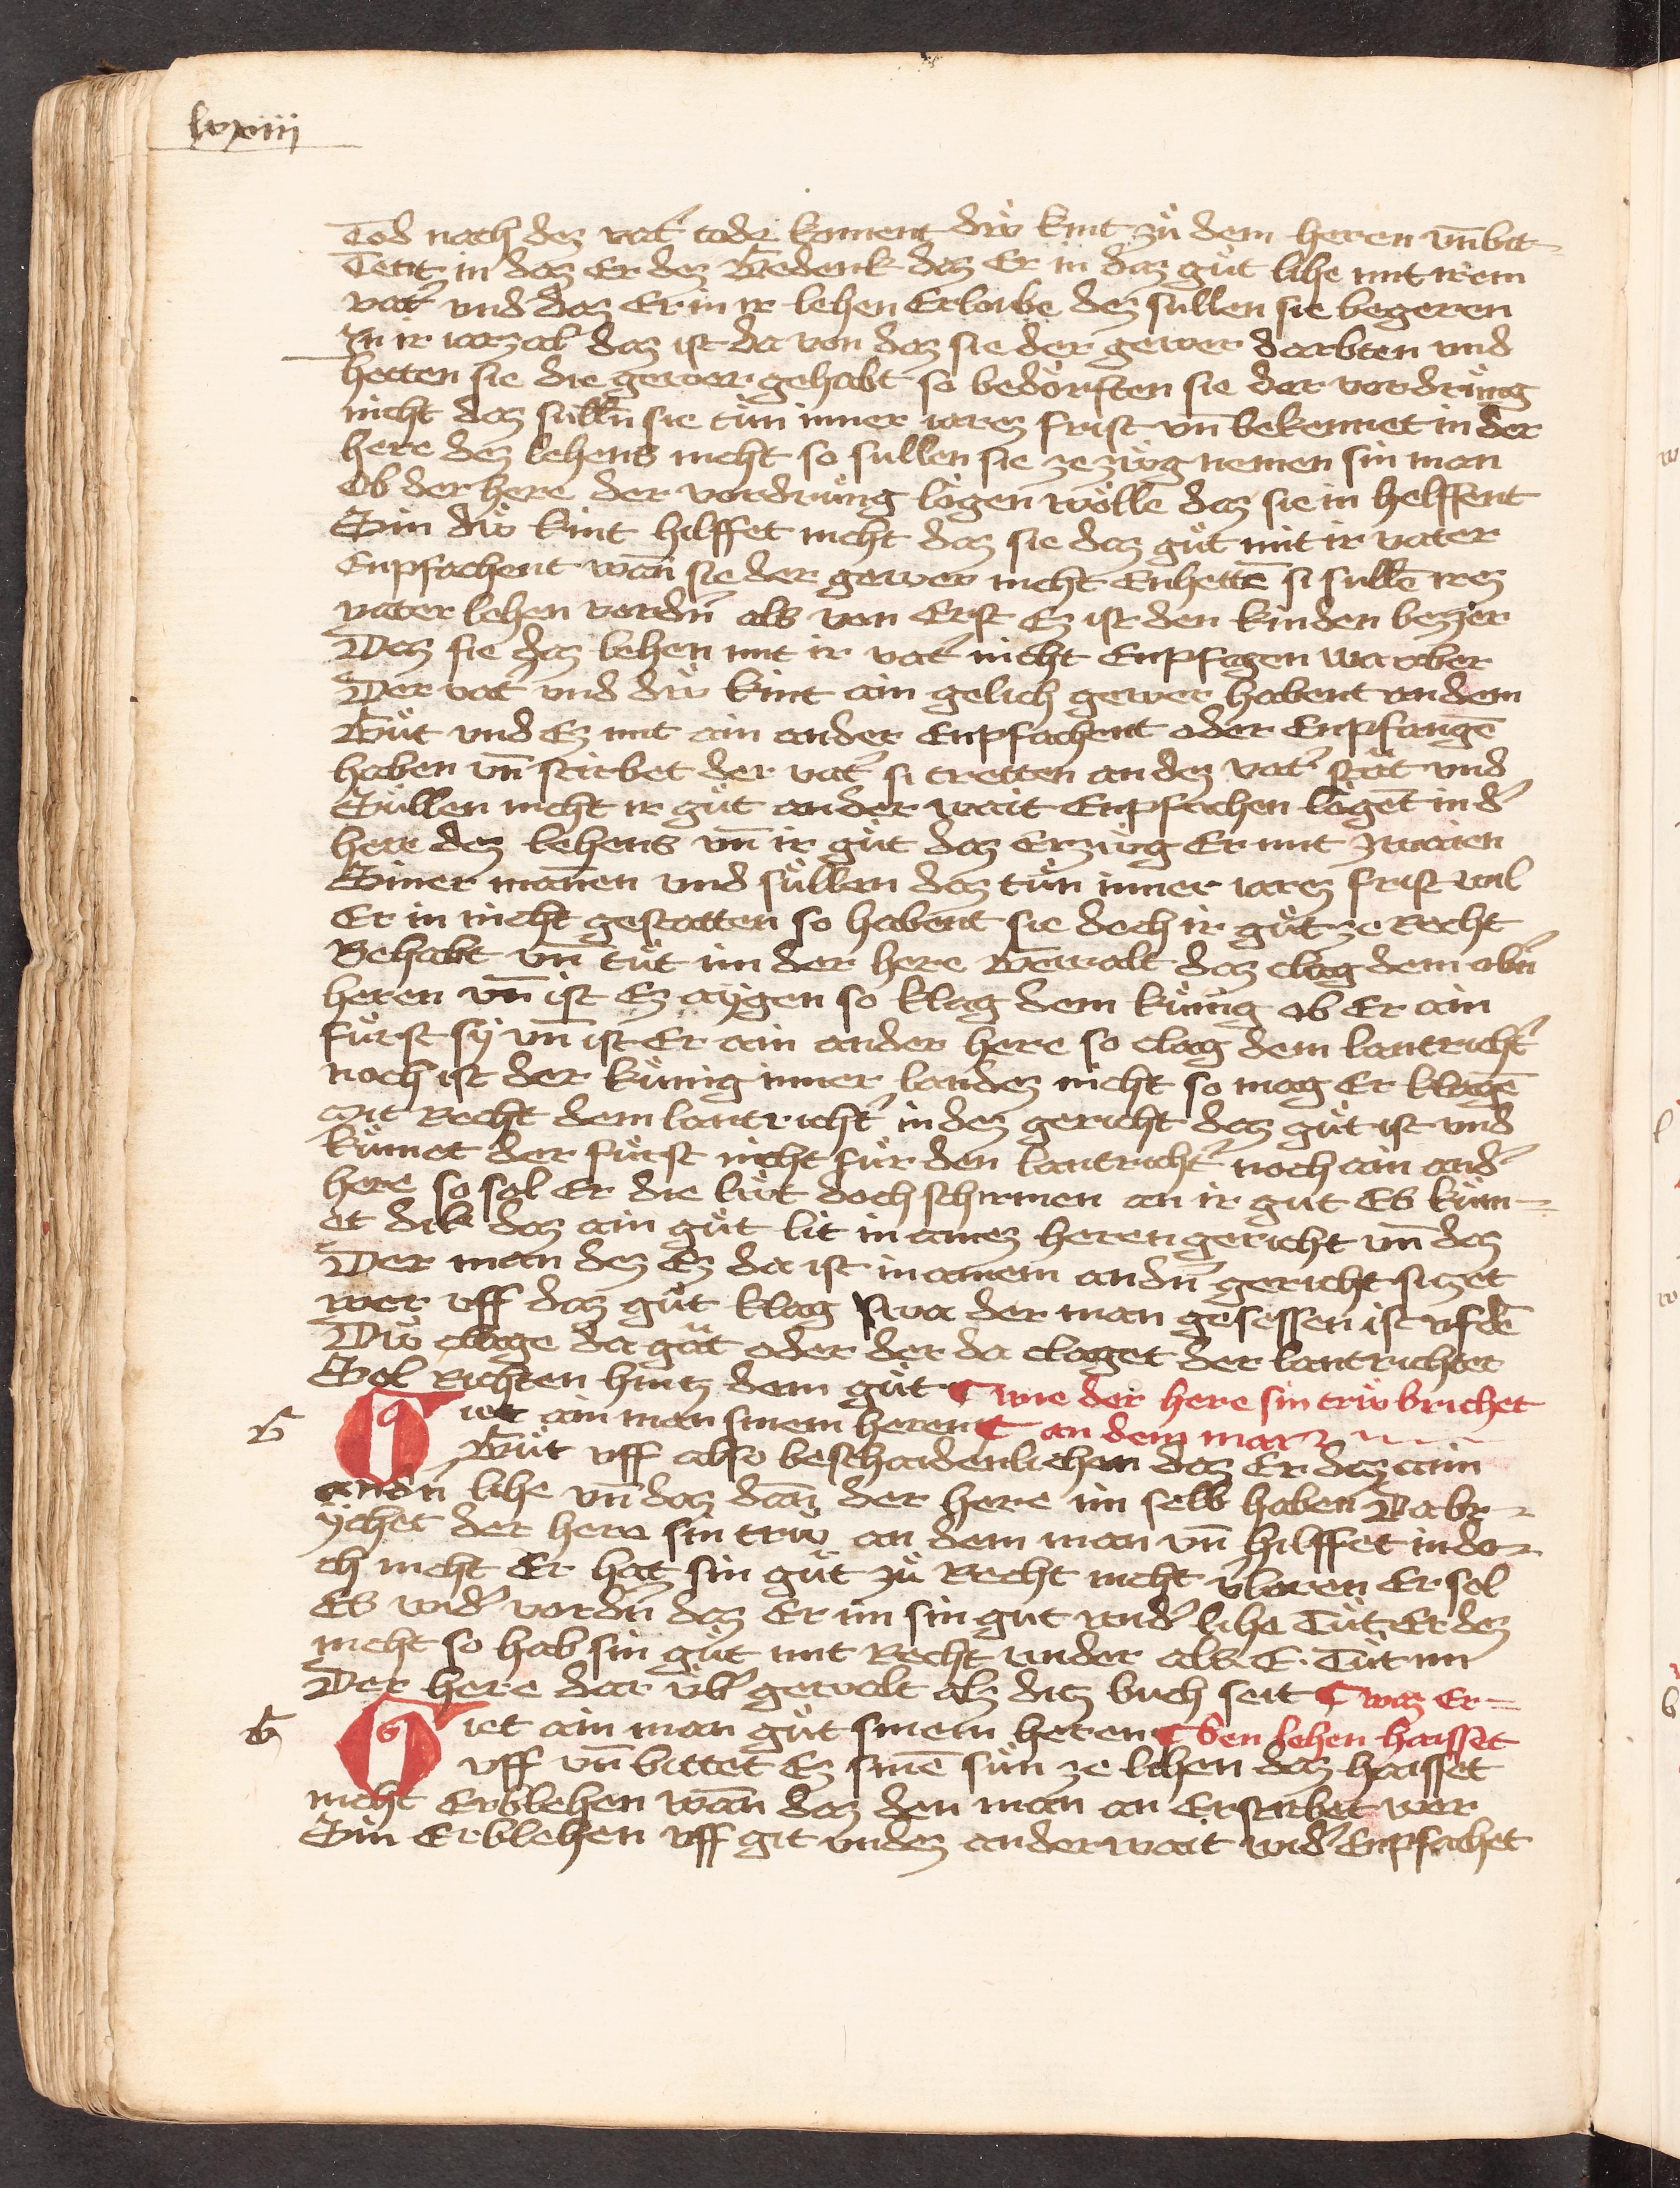 lxxiiij
Tod nach dez vat' tode koment diu̍ kint zu̍ dem heren vn̄ bit=
Tent in daz Er dez Gedenk daz Er in daz gu̍t lihe mit irem
vat' vnd daz Er in ir lehen Erlaube dez sullen sie begeren
In ir iarzal daz ist da von daz sie der gewer darbten vnd
hetten sie die gewer gehabt so bedörften sie der vordrüng
nicht daz sülln̄ sie tün inner iarez frist vn̄ bekennet in der
here dez lehens nicht so sullen sie ze ziüg nemen sin man
Ob der here der vordrüng lögen wölle daz sie in helffent
Sin diu̍ kint hilffet nicht daz sie daz gu̍t mit ir vater
Enpfachent wan̄ sie der gewer nicht Enhettē si sullē irez
vater lehen vordn̄ als von Erst Ez ist den kinden bezzer
Daz sie daz lehen mit ir vat' nicht Enpfagen wa aber
Der vat' vnd diu̍ kint ain gelich gewer habent an dem
Gu̍t vnd Ez mit ain ander Enpfachent oder Enpfangē
haben vn̄ stirbet der vat' si tretten an dez vat' stat vnd
Süllen nicht ir gu̍t ander wait Enpfachen lögēt in d'
here dez lehens vn̄ ir gu̍t daz Erziug Er mit zwaien
Siner mañen vnd süllen daz tün inner iarez frist wil
Er in nicht gestatten so habent sie doch ir gu̍t ze Recht
Behabt vn̄ tu̍t im der here Gewalt daz clag dem obn̄
heren vn̄ ist Ez aygen so klag dem küng ob Er ain
fürst sÿ vn̄ ist Er ain ander here so clag dem lantricht'
noch ist der küning inner landez nicht so mag Er klagē
mit Recht dem lantricht' in dez gericht daz gu̍t ist vnd
kümet der fürst nicht für den lantricht' noch ain and'
here so sol Er die liut doch schirmen an ir gut Es küm=
et dik daz ain gu̍t lit in ainez heren gericht vn̄ daz
Der man dez Ez da ist in ainem andn̄ gericht sizet
wer vff daz gu̍t klag swa der man gesessen ist vf dē
Diu̍ clage da gat oder der da claget der lantrichter
Sol Richten hintz dem gu̍t ¶ wie der here sin triu̍ brichet
G iet ain man sinem heren ¶ an dem man
Gu̍t vff also beschaidenlichen daz Er daz aim
andn̄ lihe vn̄ daz dan̄ der here im selb haben Da br=
ÿchet der here sin triu̍ an dem man vn̄ hilffet in do=
ch nicht Er hat sin gu̍t zu̍ Recht nicht v'loren Er sol
Es wid' vordn̄ daz Er im sin gut wid' lihe Tu̍t Er dez
nicht so hab sin gu̍t mit Recht wider als E. Tu̍t im
Der here dar vb' gewalt alz ditz buch seit ¶ waz Er=
G iet ain man gu̍t sinem heren ¶ ben lehen haisset
vff vn̄ bittet Ez sinē sün ze lihen daz haisset
nicht Erblehen wan̄ daz den man an Erstirbet wer
Sin Erblehen vff git vndez anderwait wid' Enpfachet